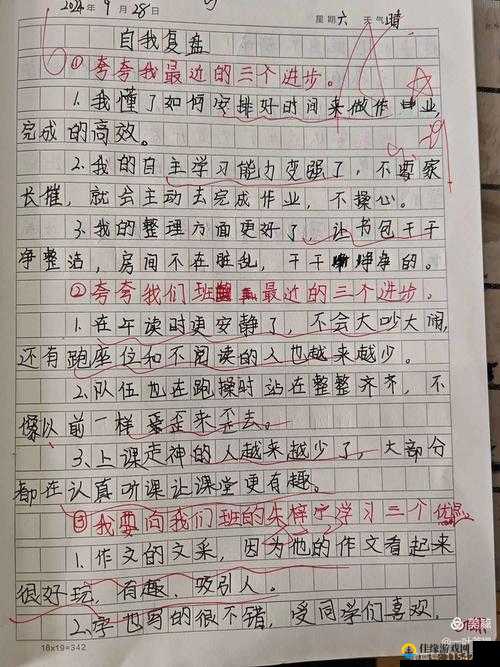 2024年9月28日 星期六 天气晴
自我复盘
①夸夸我最近的三个进步。
1.我懂了如何安排好时间来做作业
完成的高效。
2.我的自主学习能力变强了，不要家
长催，就会主动去完成作业，不操心。
3.我的整理方面更好了，让书包干干
净整洁，房间不在脏乱，干干净净的。
②夸夸我们班最近的三个进步。
1.在午读时更安静了，不会大吵大闹，
还有跑座位和不阅读的人也越来越少。
2.队伍也在跑操时站在整整齐齐，不
像以前一样歪来歪去。
3.上课走神的人越来越少了，大部分
都在认真听课让课堂更有趣。
③我要向我们班的朱梓宁学习三个优点
1.作文的文采，因为他的作文看起来
很好玩，有趣，吸引人。
2.字也写的很不错，受同学们喜欢，
18x19=342
佳缘游戏网